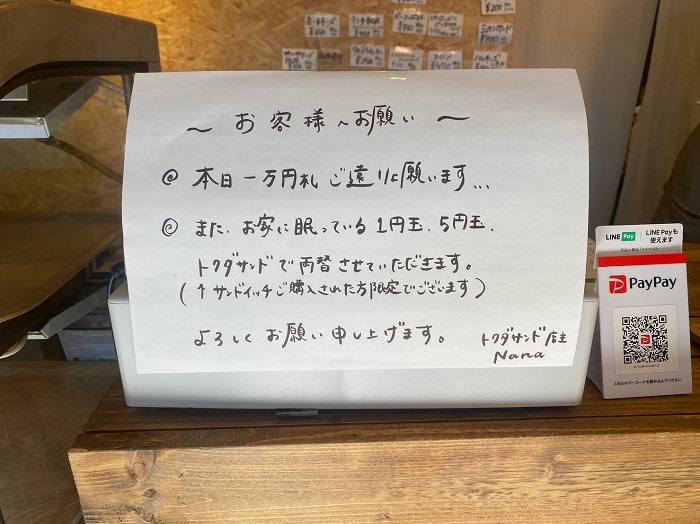 ～ お客様へお願い ～
◎ 本日一万円札ご遠りょ願います...
◎ また、お家に眠っている1円玉、5円玉、
トクダサンドで両替させていただきます。
(↑サンドイッチご購入された方限定でございます)
よろしくお願い申し上げます。
トクダサンド店主
Nana
LINE Pay
LINE Payも
使えます
PayPay